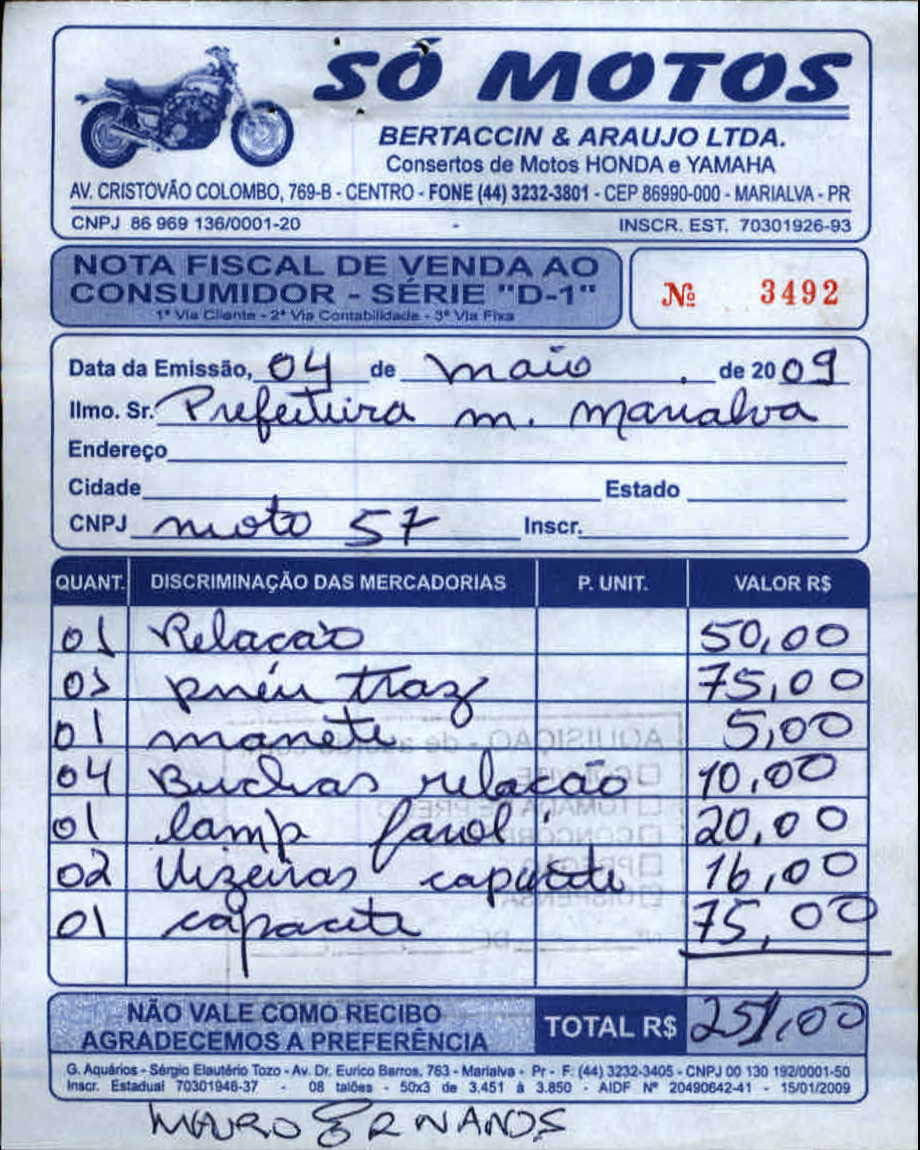 SÓ MOTOS
BERTACCIN & ARAUJO LTDA.
Consertos de Motos HONDA e YAMAHA
AV. CRISTOVÃO COLOMBO, 769-B - CENTRO - FONE (44) 3232-3801 - CEP 86990-000 - MARIALVA - PR
CNPJ 86 969 136/0001-20 - INSCR. EST. 70301926-93
NOTA FISCAL DE VENDA AO
CONSUMIDOR - SÉRIE "D-1"
1ª Via Cliente - 2ª Via Contabilidade - 3ª Via Fixa
Nº 3492
Data da Emissão, 04 de maio de 2009
Ilmo. Sr. Prefeitura m. marialva
Endereço
Cidade Estado
CNPJ moto 57 Inscr.
QUANT. DISCRIMINAÇÃO DAS MERCADORIAS P. UNIT. VALOR R$
01 Relacão 50,00
01 pneu traz 75,00
01 manete 5,00
04 Buchas relacão 10,00
01 lamp farol 20,00
02 Vizeiras capacete 16,00
01 capacete 75,00
AQUISIÇÃO - de acordo com
CONVITE
TOMADA DE PREÇO
PREGÃO
DISPENSA
Nº DE
NÃO VALE COMO RECIBO
AGRADECEMOS A PREFERÊNCIA
TOTAL R$ 251,00
G. Aquários - Sérgio Elautério Tozo - Av. Dr. Eurico Barros, 763 - Marialva - Pr - F: (44) 3232-3405 - CNPJ 00 130 192/0001-50
Inscr. Estadual 70301946-37 - 08 talões - 50x3 de 3.451 à 3.850 - AIDF Nº 20490642-41 - 15/01/2009
MAURO